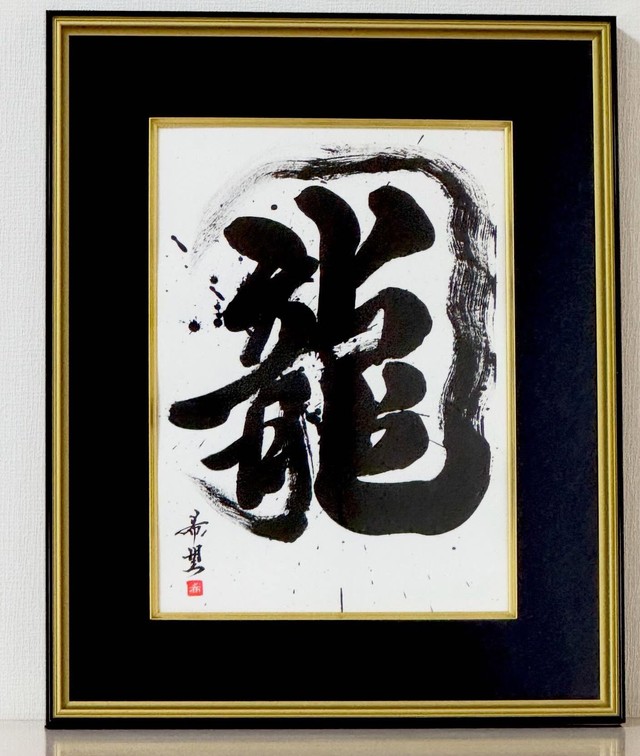 龍
希望